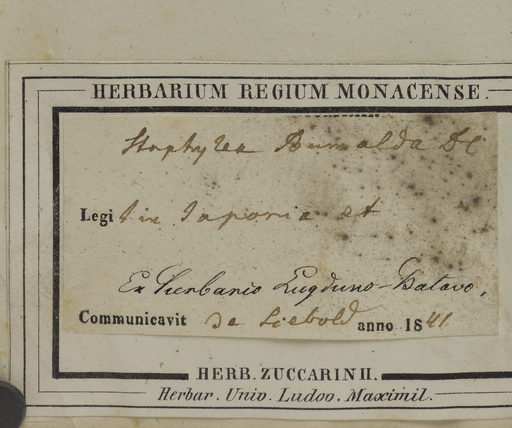 HERBARIUM REGIUM MONACENSE.
Staphylea Bumalda DC
Legi in Japonia et
Ex Herbario Lugduno-Batavo,
Communicavit De Siebold anno 1841
HERB. ZUCCARINII.
Herbar. Univ. Ludov. Maximil.